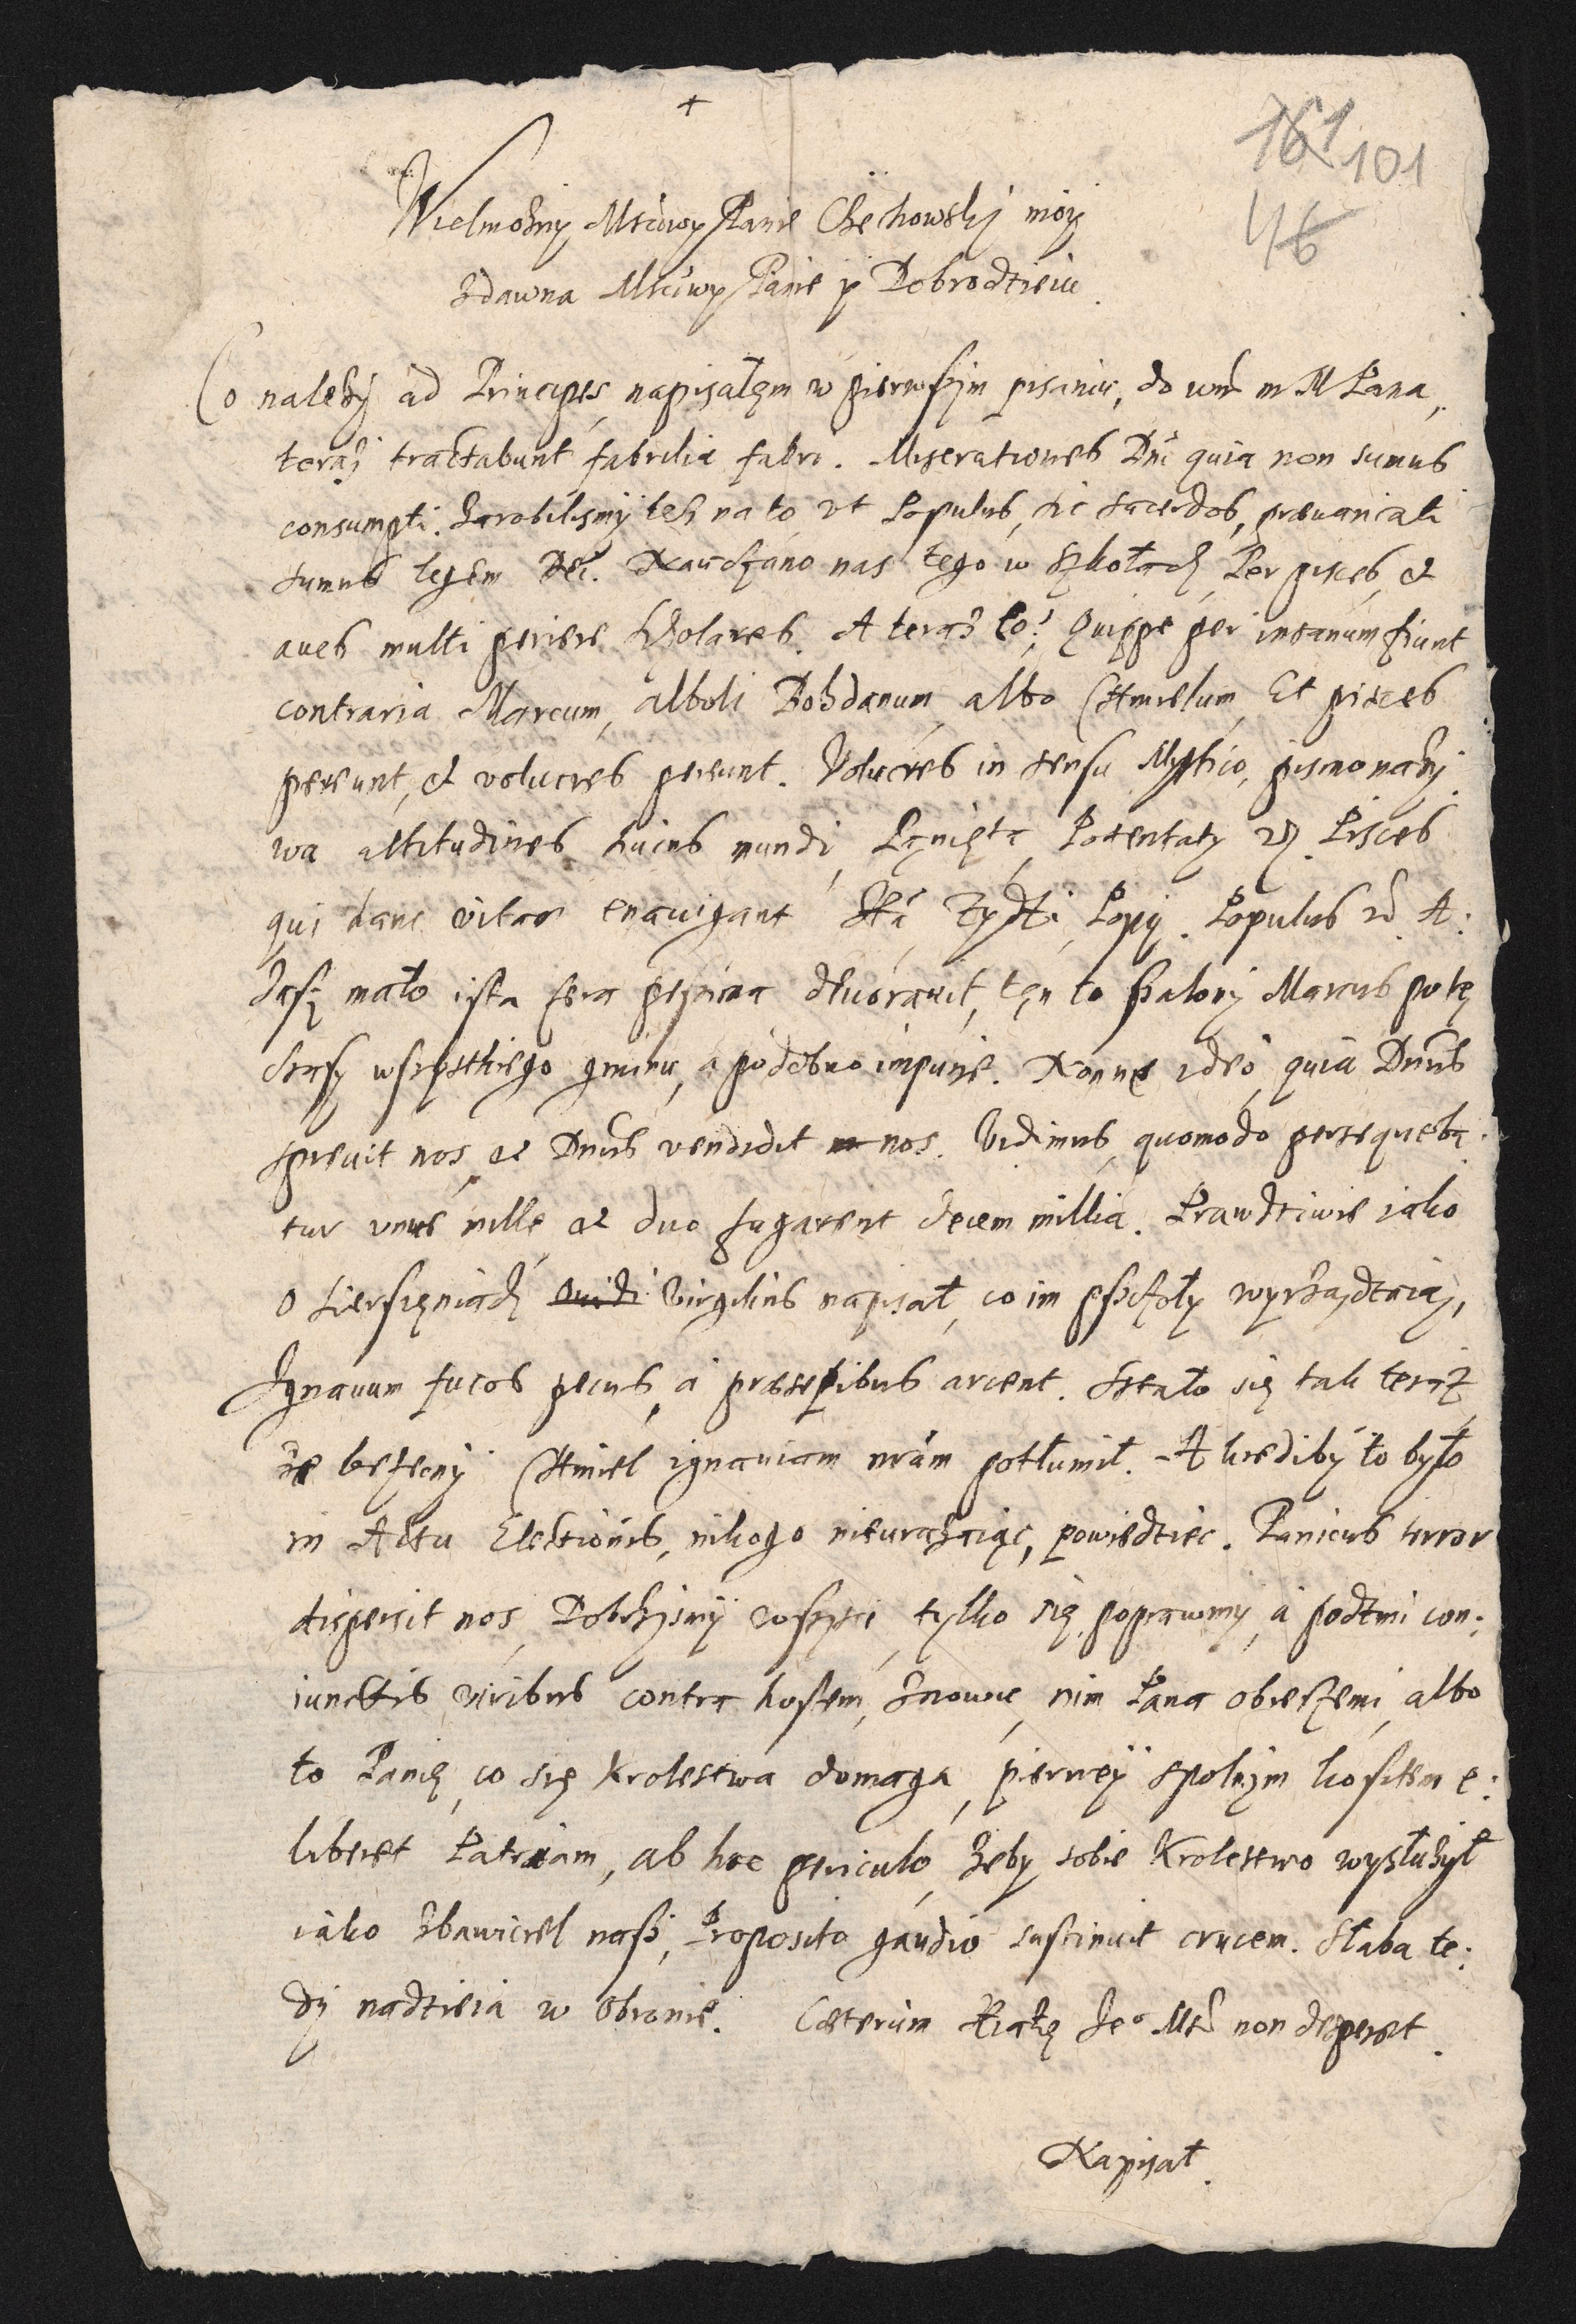 +
161 101
46
Wielmożny Mściwy Panie Chęchowsky moy
zdawna Mściwy Panie y Dobrodzieiu.
Co należy ad Principes, napisałęm w pierwszym pisaniu, do wm m M Pana,
teraz tractabunt fabrilia fabri. Miserationes Dni quia non sumus
consumpti. Zarobilismy tesz na to ut Populus, sic sacerdos, prævaricati
sumus legem Dei. Nauczano nas tego w szkołach, Per pisces, et
aues multi periere scholares. A teraz co? Quippe per insanum fiunt
contraria Marcum, alboli Bohdanum, albo Chmielum, Et pisces
pereunt, et volucres pereunt. Volucres in sensu Mystico, pismo nazy
wa altitudines huius mundi, Pąnięta, Potentaty etc. Pisces
qui hanc vitam enauigant Żydzi, Popy. Populus etc. A:
Zasz mało ista fera pessima deuorauit, ten to szalony Marcus po tę
czasy wszystkiego gminu, a podobno impune. Nonne ideo, quia Dnus
spreuit nos, et Dnus vendidit nos. Vidimus, quomodo persequeba
tur vnus mille et duo fugarent decem millia. Prawdziwie iako
o sierszęniach Ouidi Virgilius napisał, co im pszczoły wyrządzaią,
Ignauum fucos pecus, á præsepibus arcent. Stało się tak teraz
że bezecny Chmiel ignauiam nram potłumił. A kiedyby to było
in Actu Electionis, nikogo nieurażaiąc, powiedziec. Panicus terror
dispersit nos, Dobrzysmy wszyscy, tylko się poprawmy, a podzmi con:
iunctis viribus contra hostem, znowu, nim Pana obierzemi, albo
to Panię, co się Krolestwa domaga, pierwey spolnym kosztem e:
liberet Patriam, ab hoc periculo, żeby sobie Krolestwo wysłużył
iako Zbawiciel nasz, Proposito gaudio sustinuit crucem. Słaba te:
dy nadzieia w obronie. Cæterum Xiążę Jeo Mść non deperet.
Napisał.